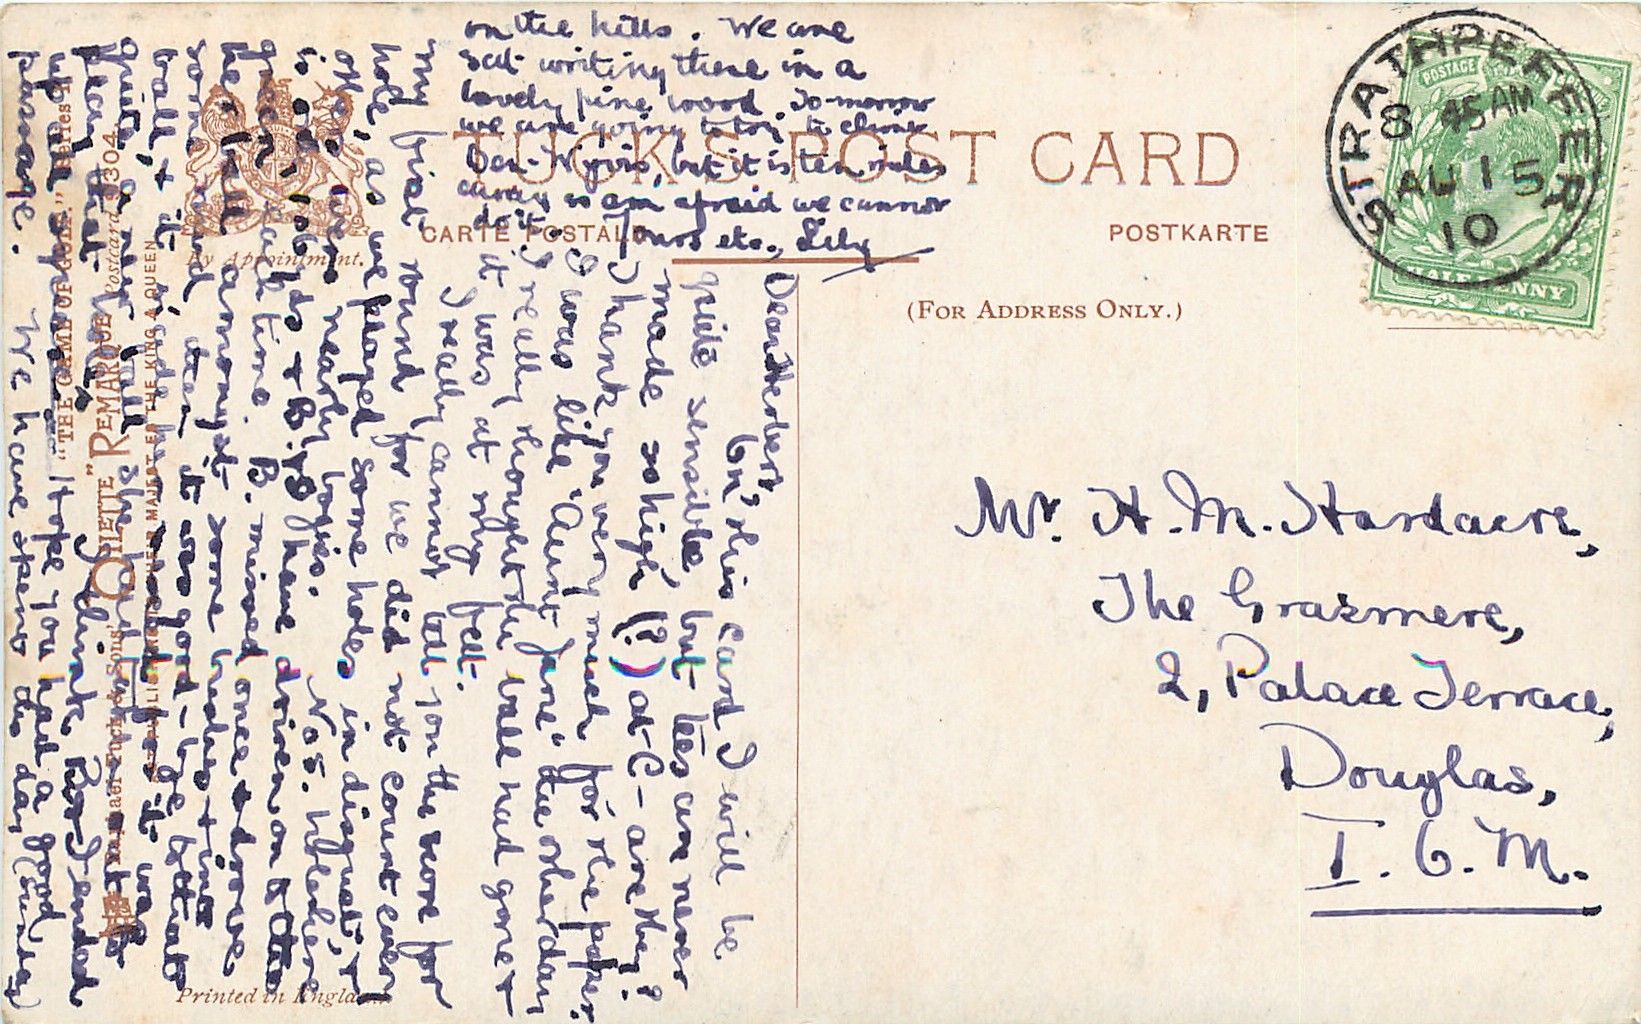 TUCK'S POST CARD
CARTE POSTALE
POSTKARTE
(FOR ADDRESS ONLY.)
By Appointment.
STRATHPEFFER
8 45 AM
AU 15
10
POSTAGE
HALF PENNY
Mr. H. M. Hardacre,
The Grasmere,
2, Palace Terrace,
Douglas,
I. O. M.
Dear Herbert,
On this card I will be
quite sensible, but tees can never
made so high (?) at C – are they?
Thank you very much for the paper.
I was like "Aunt Jane" the other day
I really thought the ball had gone &
it was at my feet.
I really cannot tell you the score for
my first round for we did not count every
hole, as we played some holes in disgust, &
others were nearly bogies. No 5. hole here
is and B. & I have driven on the
green each time. B. missed once & drove
the ball amongst some
some and then it was good-bye
ball & it
quite a new ball she
play that I think B. & I ended
up all square. Hope you had a good
passage. We have spent the day
on the hills. We are
sat writing these in a
lovely pine wood. To-morrow
we are going to try to climb
Ben-Wyvis, but it is ten miles
away so am afraid we cannot
do it. Yours etc., Lily
"THE GAME OF GOLF." Series
"OILETTE" REMARQUE Postcard 9304
Raphael Tuck & Sons
PUBLISHERS THEIR MAJESTIES THE KING & QUEEN
Printed in England